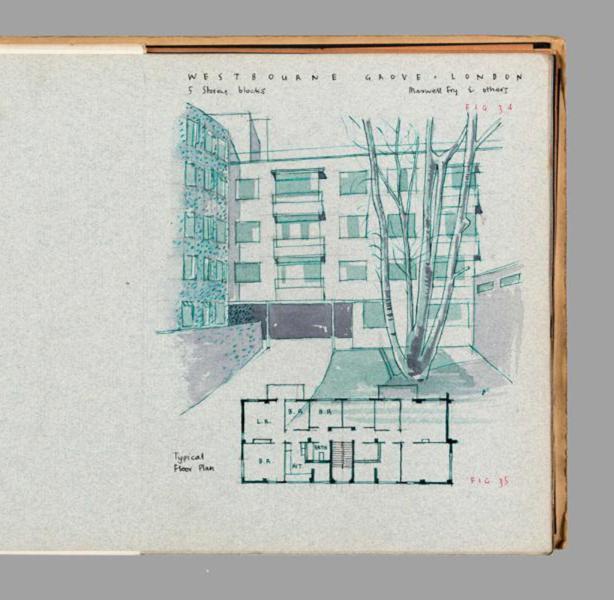 WESTBOURNE GROVE · LONDON
5 Storey blocks
Maxwell Fry & others
FIG 34
L.R.
B.R.
B.R.
B.R.
BATH
KIT.
Typical
Floor Plan
FIG 35